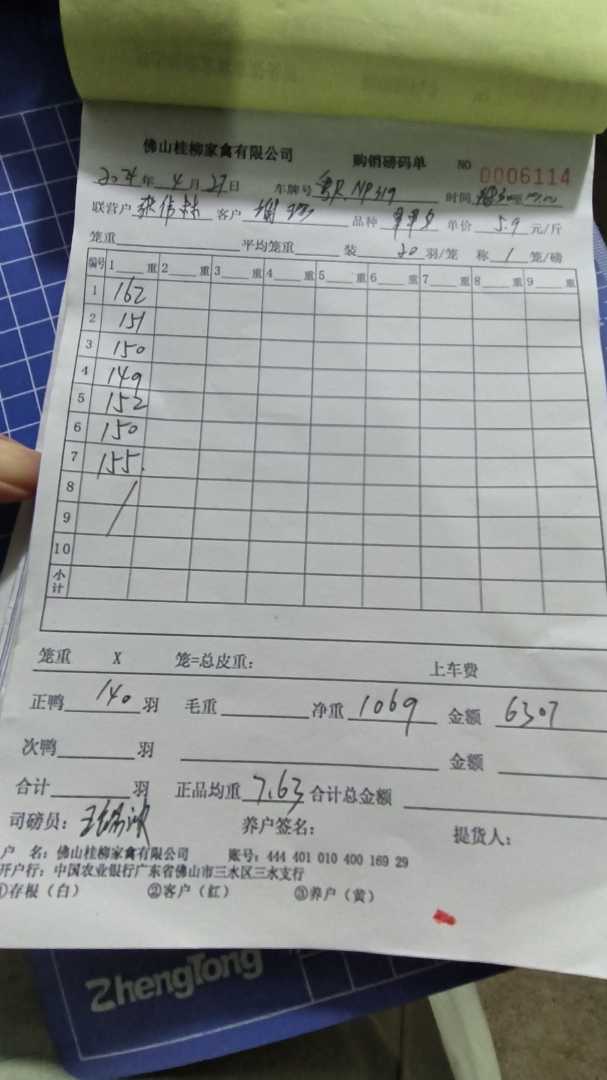 佛山桂柳家禽有限公司 购销磅码单 NO 0006114
2024年4月27日 车牌号 粤R.NP319 时间
联营户 客户 谢 品种 单价 5.9 元/斤
笼重 平均笼重 装 20 羽/笼 称 1 笼/磅
编号 1 重 2 重 3 重 4 重 5 重 6 重 7 重 8 重 9 重
1 162
2 151
3 150
4 149
5 152
6 150
7 155.
8
9
10
小计
笼重 X 笼=总皮重: 上车费
正鸭 140 羽 毛重 净重 1069 金额 6307
次鸭 羽 金额
合计 羽 正品均重 7.63 合计总金额
司磅员: 养户签名: 提货人:
户 名: 佛山桂柳家禽有限公司 账号: 444 401 010 400 169 29
开户行: 中国农业银行广东省佛山市三水区三水支行
①存根（白） ②客户（红） ③养户（黄）
ZhengTong